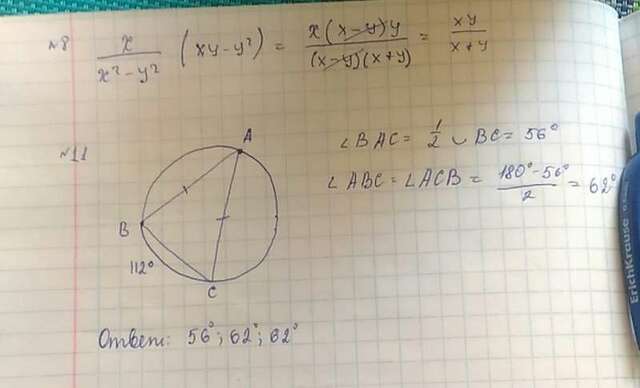 №8 x / (x² - y²) (xy - y²) = x(x-y)y / ((x-y)(x+y)) = xy / (x+y)
№11
A
B
C
112°
∠BAC = 1/2 ◡ BC = 56°
∠ABC = ∠ACB = (180° - 56°) / 2 = 62°
Ответ: 56°; 62°; 62°
ErichKrause